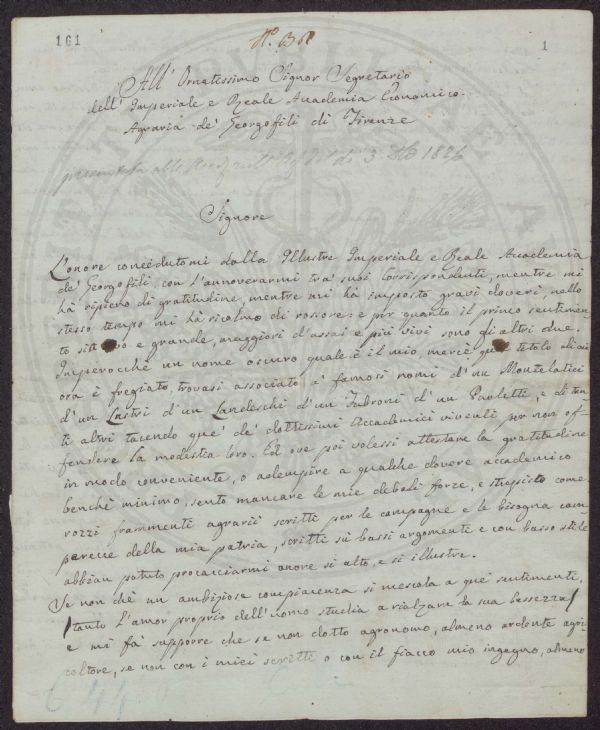 161
1
All' Ornatissimo Signor Segretario
dell' Imperiale e Reale Accademia Economico-
Agraria de' Georgofili di Firenze
3 1826
Signore
L'onore concedutomi dalla Illustre Imperiale e Reale Accademia
de' Georgofili, con l'annoverarmi trà suoi Corrispondenti, mentre mi
hà ripieno di gratitudine, mentre mi hà imposto gravi doveri, nello
stesso tempo mi hà ricolmo di rossore: e per quanto il primo sentimen
to sia vivo e grande, maggiori d'assai e più vivi sono gli altri due.
Imperocchè un nome oscuro quale è il mio, mercè quel titolo di cui
ora è fregiato trovasi associato a' famosi nomi d'un Montelatici
d'un Lastri d'un Landeschi d'un Fabroni d'un Paoletti, e di tan-
ti altri tacendo que' de' dottissimi Accademici viventi per non of-
fendere la modestia loro. Ed ove poi volessi attestare la gratitudine
in modo conveniente, o adempire a qualche dovere accademico
benchè minimo, sento mancare le mie deboli forze, e stupisco come
rozzi frammenti agrarii scritti per le campagne e le bisogna cam-
perecce della mia patria, scritti sù bassi argomenti e con basso stile
abbian potuto procacciarmi onore sì alto, e sì illustre.
Se non che un ambiziosa compiacenza si mescola a que' sentimenti,
(tanto l'amor proprio dell'uomo studia a rialzare la sua bassezza)
e mi fà supporre che se non dotto agronomo, almeno ardente agri-
coltore, se non con i miei scritti o con il fiacco mio ingegno, almeno